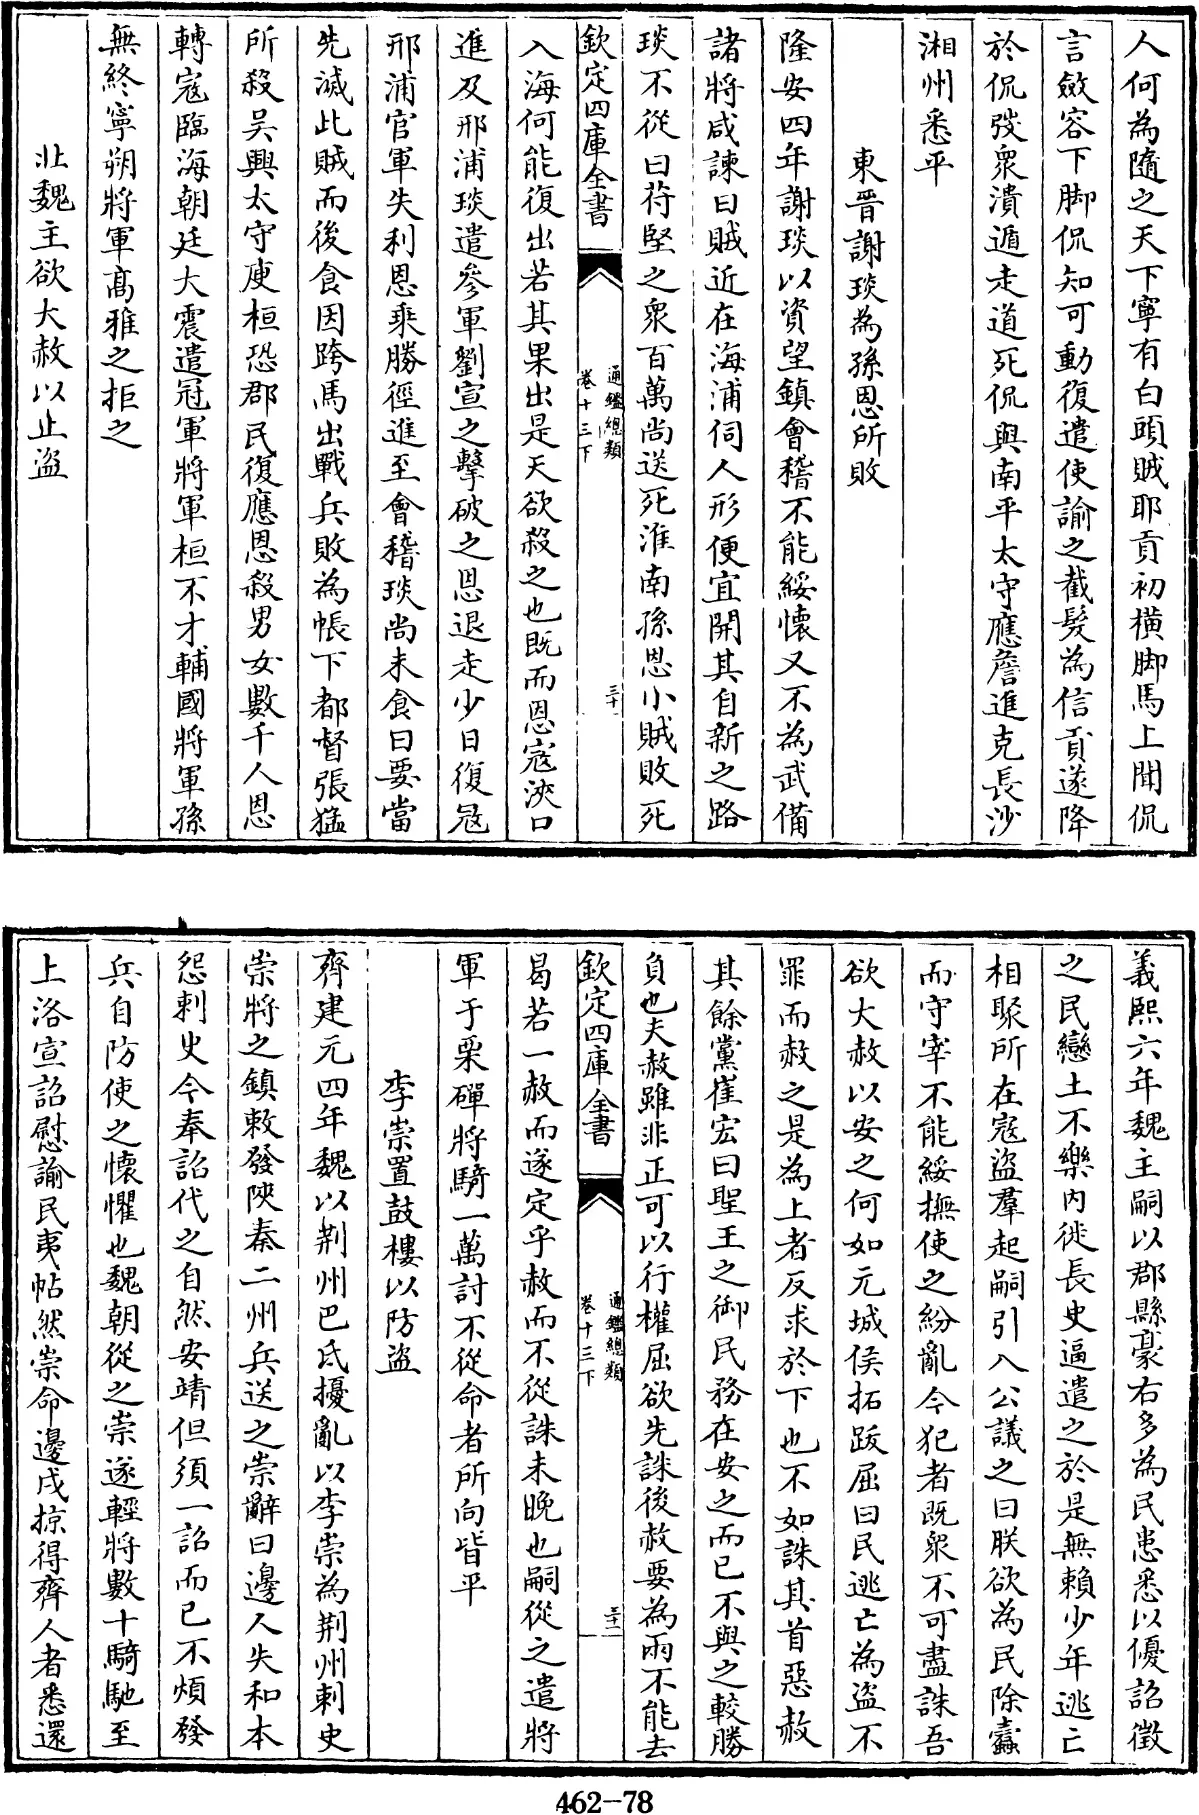 人何為隨之天下寧有白頭賊耶貢初橫脚馬上聞侃
言斂容下脚侃知可動復遣使諭之截髮為信貢遂降
於侃弢衆潰遁走道死侃與南平太守應詹進克長沙
湘州悉平
東晉謝琰為孫恩所敗
隆安四年謝琰以資望鎮會稽不能綏懷又不為武備
諸將咸諫曰賊近在海浦伺人形便宜開其自新之路
琰不從曰苻堅之衆百萬尚送死淮南孫恩小賊敗死
欽定四庫全書
通鑑總類
卷十三下
三十
入海何能復出若其果出是天欲殺之也既而恩寇浹口
進及邢浦琰遣參軍劉宣之擊破之恩退走少日復冦
邢浦官軍失利恩乘勝徑進至會稽琰尚未食曰要當
先滅此賊而後食因跨馬出戰兵敗為帳下都督張猛
所殺吳興太守庾桓恐郡民復應恩殺男女數千人恩
轉寇臨海朝廷大震遣冠軍將軍桓不才輔國將軍孫
無終寧朔將軍髙雅之拒之
北魏主欲大赦以止盜
義熙六年魏主嗣以郡縣豪右多為民患悉以優詔徵
之民戀土不樂內徙長史逼遣之於是無賴少年逃亡
相聚所在寇盜羣起嗣引入公議之曰朕欲為民除蠹
而守宰不能綏撫使之紛亂今犯者既衆不可盡誅吾
欲大赦以安之何如元城侯拓跋屈曰民逃亡為盜不
罪而赦之是為上者反求於下也不如誅其首惡赦
其餘黨崔宏曰聖王之御民務在安之而已不與之較勝
負也夫赦雖非正可以行權屈欲先誅後赦要為兩不能去
欽定四庫全書
通鑑總類
卷十三下
三十一
曷若一赦而遂定乎赦而不從誅未晚也嗣從之遣將
軍于栗磾將騎一萬討不從命者所向皆平
李崇置鼓樓以防盜
齊建元四年魏以荆州巴氐擾亂以李崇為荆州刺史
崇將之鎮敕發陜秦二州兵送之崇辭曰邊人失和本
怨刺史今奉詔代之自然安靖但須一詔而已不煩發
兵自防使之懷懼也魏朝從之崇遂輕將數十騎馳至
上洛宣詔慰諭民夷帖然崇命邊戍掠得齊人者悉還
462-78